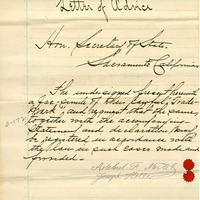 Letter of Advice
Hon. Secretary of State.
Sacramento California
The undersigned present herewith
a fac-simile of their Trade-
Mark and request that the same,
together with the accompanying
Statement and declaration may
be registered in accordance with
the law in such cases made and
provided.